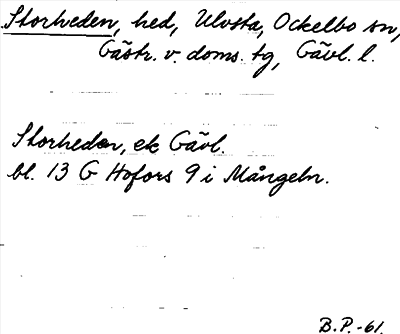 Storheden, hed, Ulvsta, Ockelbo sn,
Gästr. v. doms. tg, Gävl. l.
Storheden, ek Gävl.
bl. 13 G Hofors 9 i Mångeln.
B.P.-61.